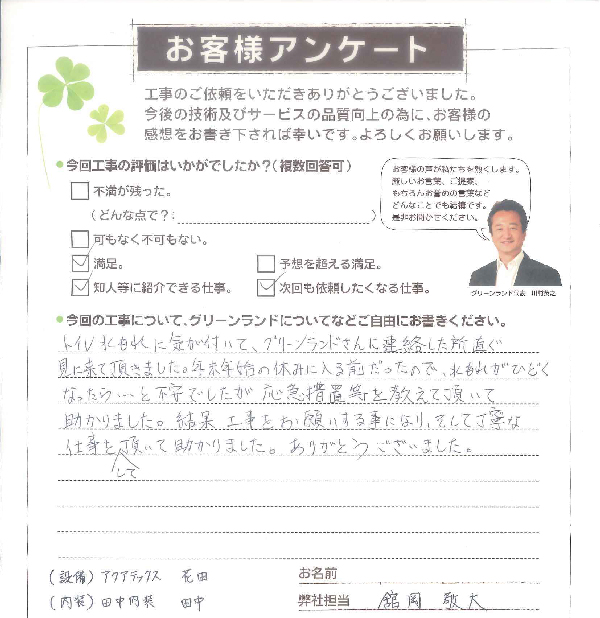 お客様アンケート
工事のご依頼をいただきありがとうございました。
今後の技術及びサービスの品質向上の為に、お客様の
感想をお書き下されば幸いです。よろしくお願いします。
今回工事の評価はいかがでしたか?(複数回答可)
不満が残った。
(どんな点で?: )
可もなく不可もない。
満足。
予想を超える満足。
知人等に紹介できる仕事。
次回も依頼したくなる仕事。
お客様の声が私たちを動くします。
厳しいお言葉、ご提案、
もちろんお誉めの言葉など
どんなことでも結構です。
是非お聞かせください。
グリーンランド代表 川村
今回の工事について、グリーンランドについてなどご自由にお書きください。
トイレ水もれに気が付いて、グリーンランドさんに連絡した所直ぐ
見に来て頂きました。年末年始の休みに入る前だったので、水もれがひどく
なったら…と不安でしたが 応急措置等を教えて頂いて
助かりました。結果 工事をお願いする事になり、そして丁寧な
仕事を頂いて助かりました。ありがとうございました。
して
(設備)アクアテックス 花田
(内装)田中内装 田中
お名前
弊社担当 舘岡 敬大